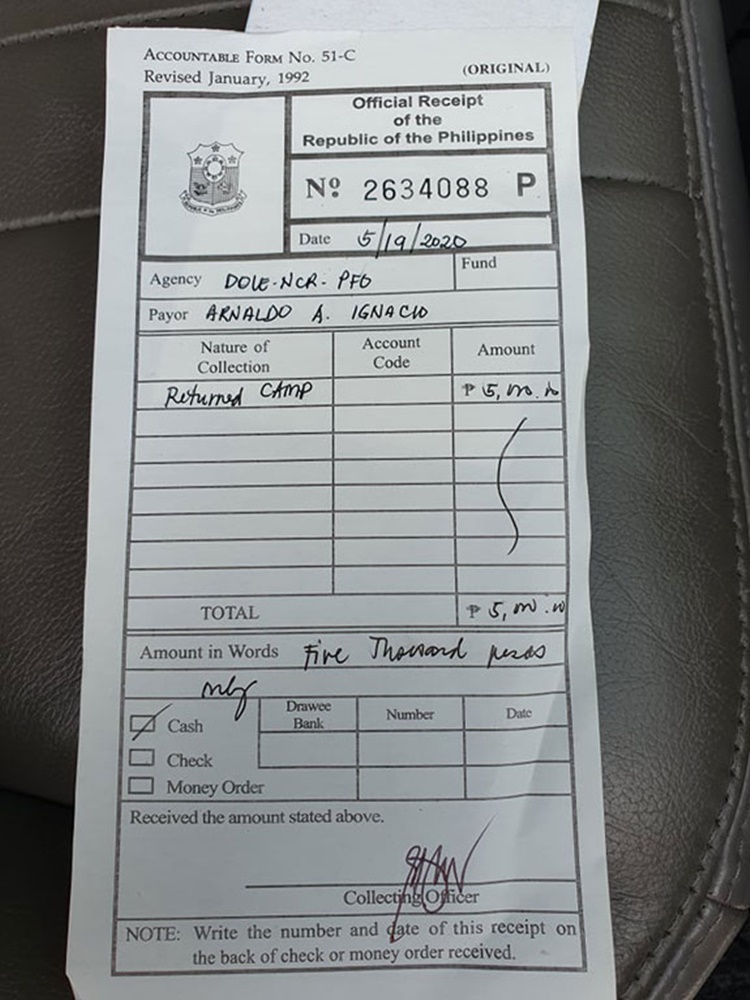 ACCOUNTABLE FORM NO. 51-C
Revised January, 1992
(ORIGINAL)
Official Receipt
of the
Republic of the Philippines
Nº 2634088 P
Date 5/19/2020
Agency DOLE-NCR-PFO
Fund
Payor ARNALDO A. IGNACIO
Nature of Collection Account Code Amount
Returned CAMP ₱ 5,000.00
TOTAL ₱ 5,000.00
Amount in Words Five Thousand pesos
only
Cash Drawee Bank Number Date
Check
Money Order
Received the amount stated above.
Collecting Officer
NOTE: Write the number and date of this receipt on
the back of check or money order received.